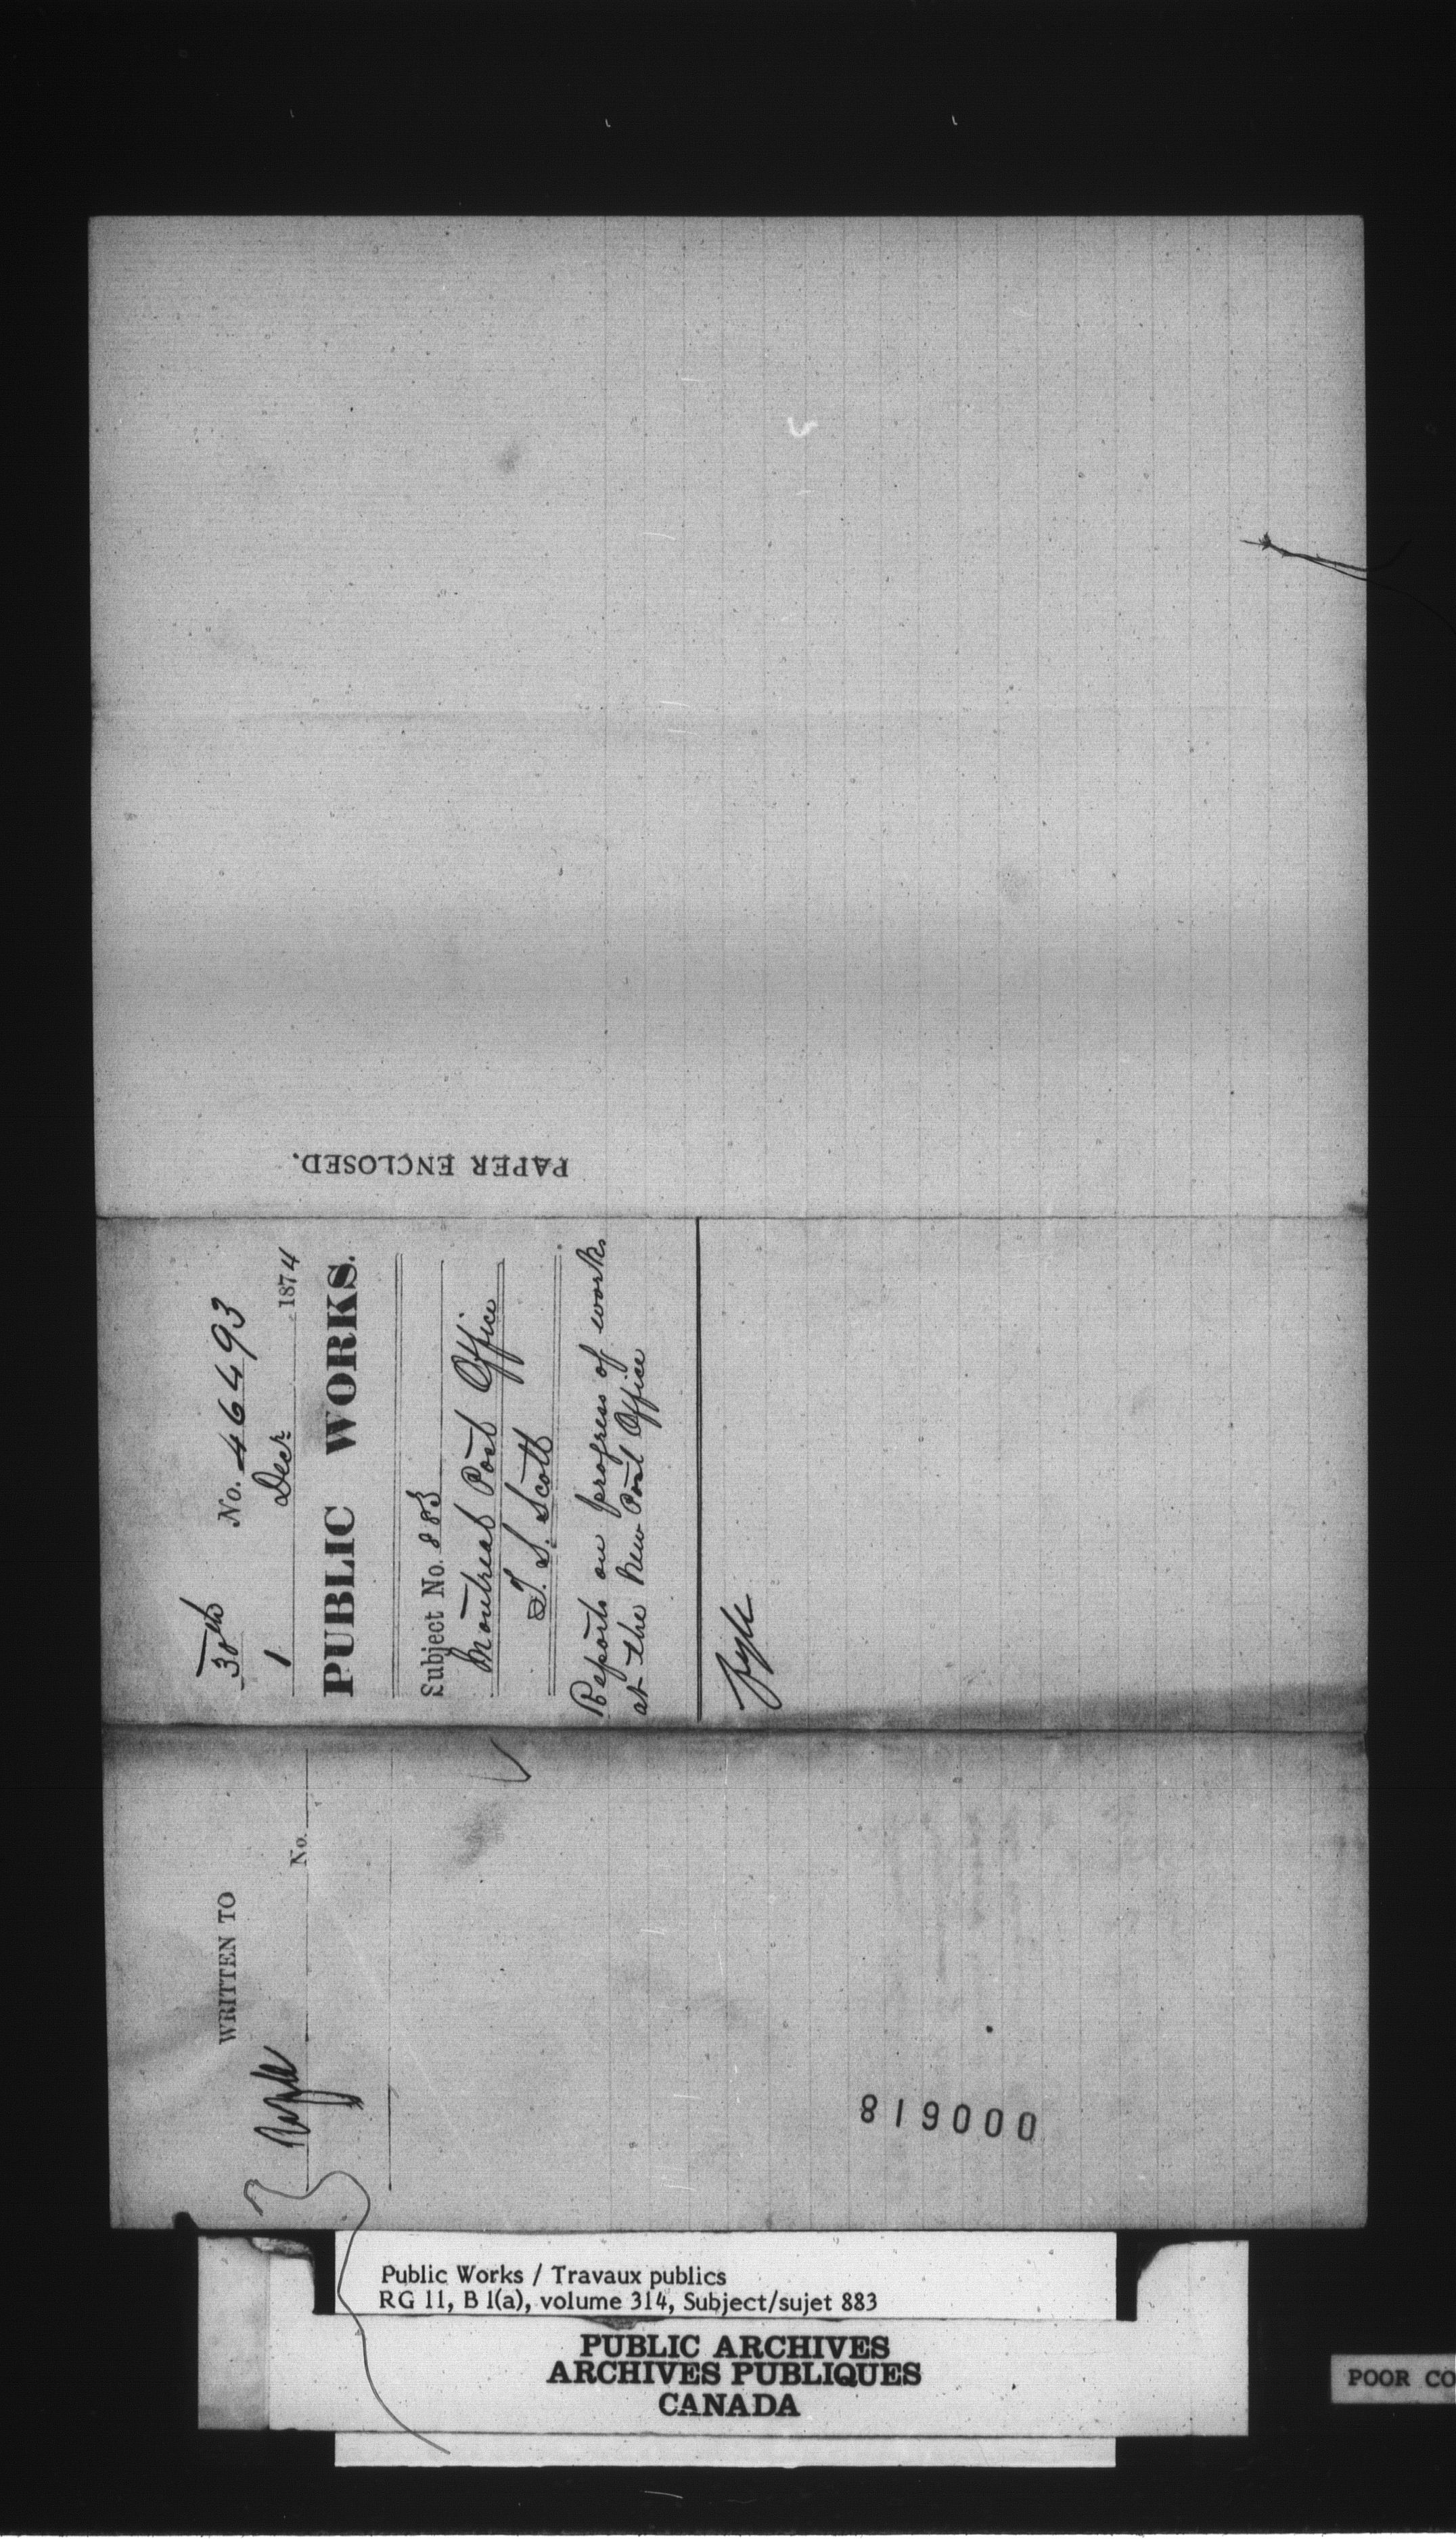 PAPER ENCLOSED.
30th
No. 46493
1 Decr. 1874
PUBLIC WORKS.
Subject No. 883
Montreal Post Office
T. S. Scott
Reports on progress of works
at the New Post Office
Fyle
WRITTEN TO
No.
819000
Public Works / Travaux publics
RG 11, B 1(a), volume 314, Subject/sujet 883
PUBLIC ARCHIVES
ARCHIVES PUBLIQUES
CANADA
POOR CO